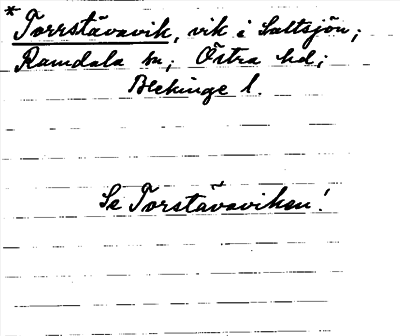 * Torrstävavik, vik i Saltsjön;
Ramdala sn; Östra hd;
Blekinge l.
Se Torstävaviken!